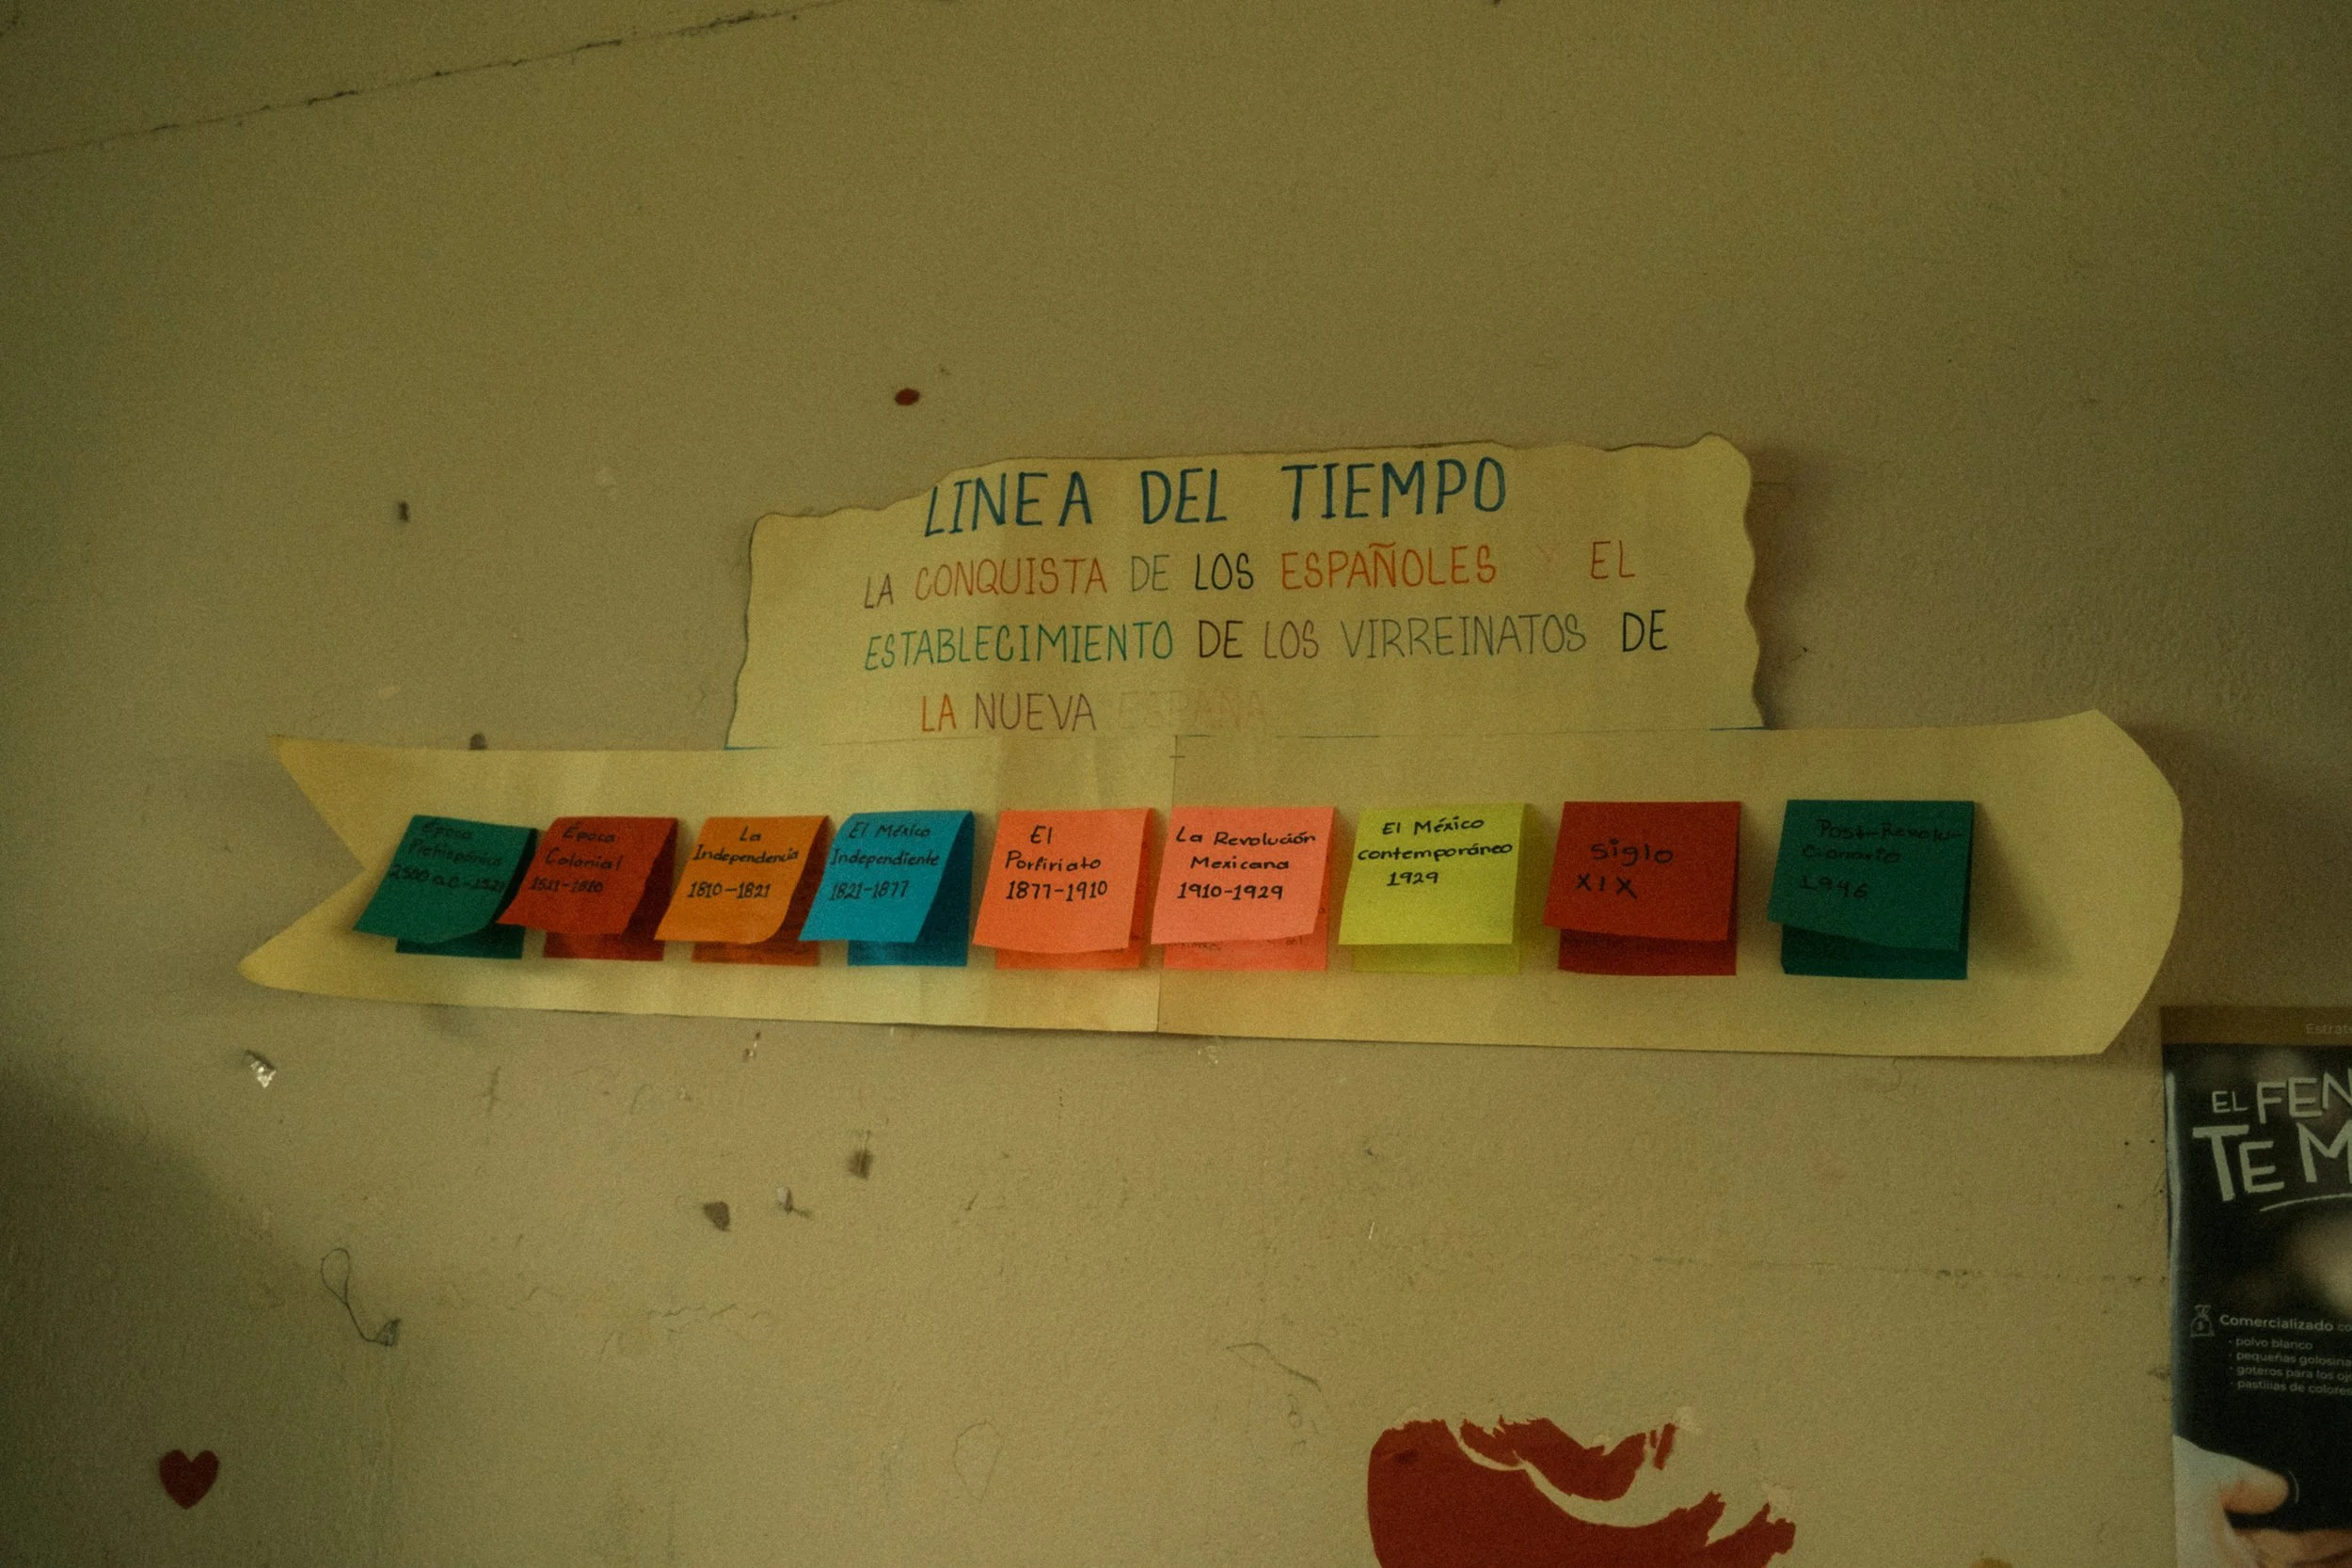 LINEA DEL TIEMPO
LA CONQUISTA DE LOS ESPAÑOLES Y EL
ESTABLECIMIENTO DE LOS VIRREINATOS DE
LA NUEVA ESPAÑA
Época
Prehispánica
2500 a.C-1521
Época
Colonial
1521-1810
La
Independencia
1810-1821
El México
Independiente
1821-1877
El
Porfiriato
1877-1910
La Revolución
Mexicana
1910-1929
El México
contemporáneo
1929
siglo
XIX
Post-Revolu-
cionario
1946
EL
TE
Comercializado
- polvo blanco
- pequeñas
- goteros para los
- pastillas de